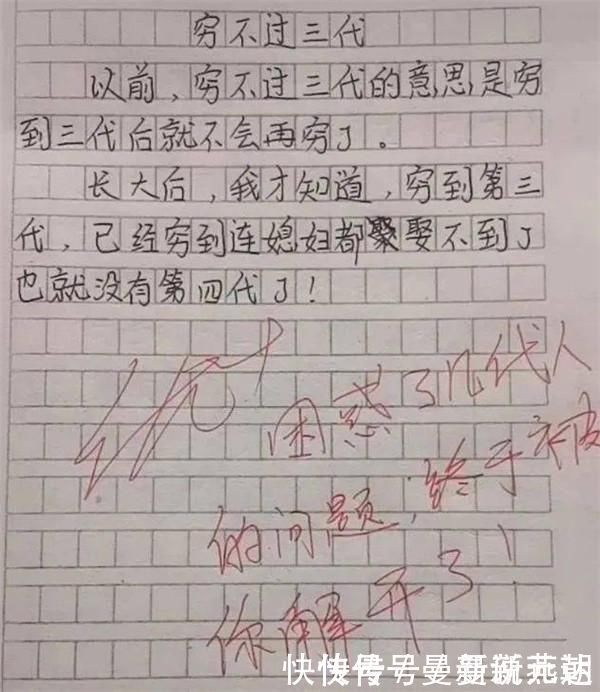 穷不过三代
以前，穷不过三代的意思是穷
到三代后就不会再穷了。
长大后，我才知道，穷到第三
代，已经穷到连媳妇都娶不到了
也就没有第四代了！
优+
困惑了几代人
的问题，终于被
你解开了！
快传号